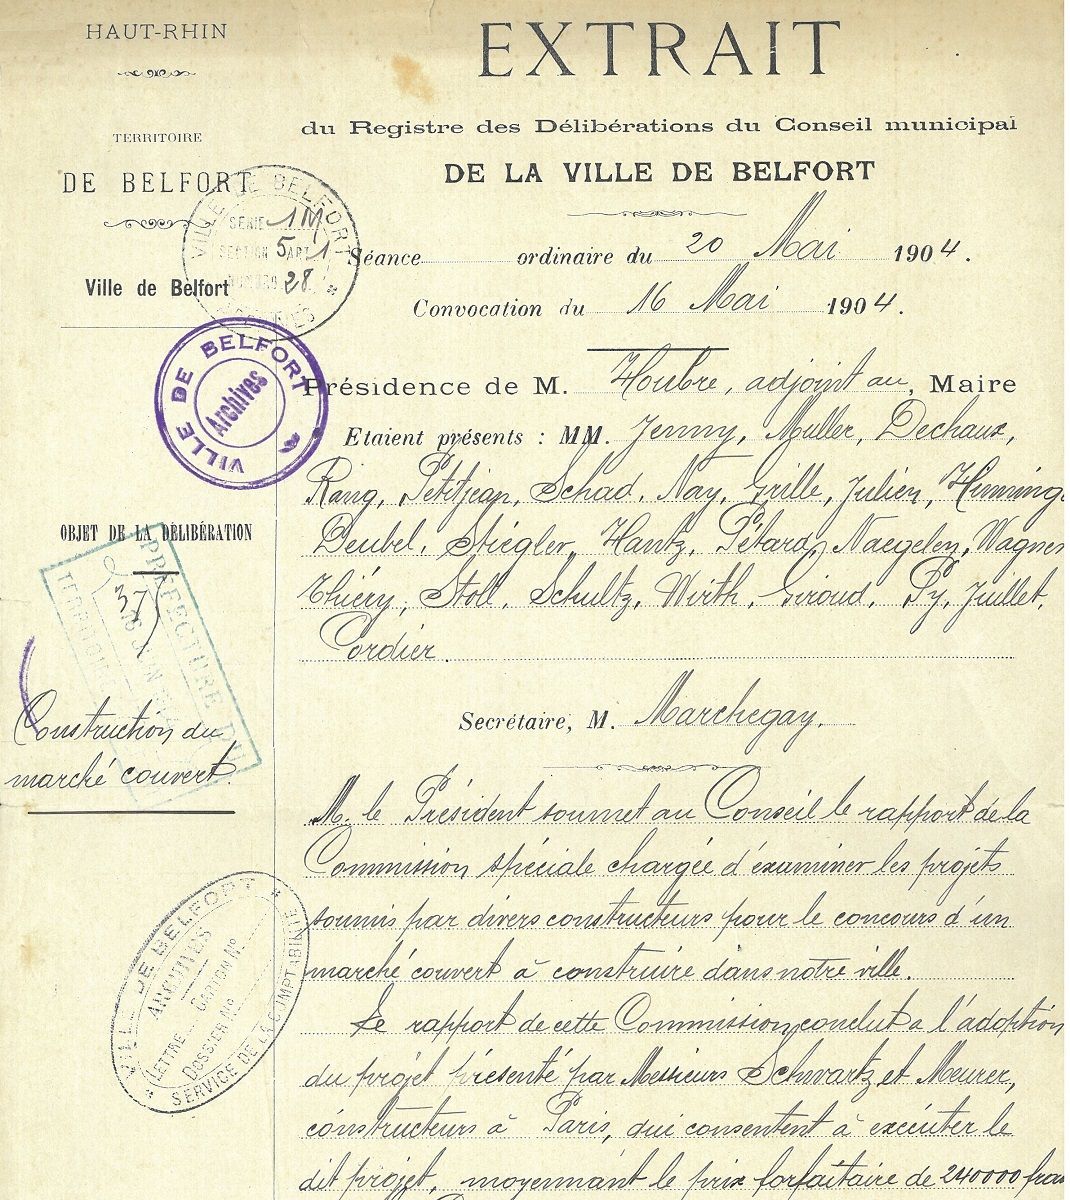 HAUT-RHIN
TERRITOIRE
DE BELFORT
Ville de Belfort
VILLE DE BELFORT
SÉRIE 1M
SECTION 5 ART 1
28
VILLE DE BELFORT
Archives
OBJET DE LA DÉLIBÉRATION
PRÉFECTURE DU
375
Construction du
marché couvert.
VILLE DE BELFORT
ARCHIVES
LETTRE CARTON N°
DOSSIER N°
SERVICE DE LA COMPTABILITÉ
EXTRAIT
du Registre des Délibérations du Conseil municipal
DE LA VILLE DE BELFORT
Séance ordinaire du 20 Mai 1904.
Convocation du 16 Mai 1904.
Présidence de M. Houbre, adjoint au, Maire
Etaient présents : MM. Jenny, Muller, Dechaux,
Rang, Petitjean, Schad, Nay, Grille, Julien,
Deubel, Stiégler, Hantz, Pétard, Naegelen, Wagner
Thiéry, Stoll, Schultz, Wirth, Giroud, Py, Juillet,
Cordier.
Secrétaire, M. Marchegay.
M. le Président soumet au Conseil le rapport de la
Commission spéciale chargée d'examiner les projets
soumis par divers constructeurs pour le concours d'un
marché couvert à construire dans notre ville.
Le rapport de cette Commission conclut à l'adoption
du projet présenté par Messieurs Schwartz et Meurer,
constructeurs à Paris, qui consentent à exécuter le
dit projet, moyennant le prix forfaitaire de 240000 fra